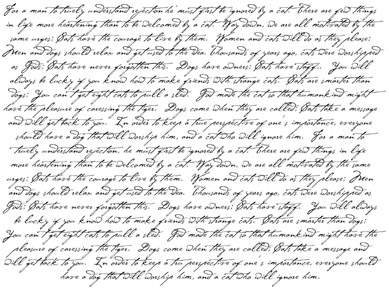 For a man to truly understand rejection, he must first be ignored by a cat. There are few things
in life more heartening than to be welcomed by a cat. Way down, we are all motivated by the
same urges; Cats have the courage to live by them. Women and cats will do as they please;
Men and dogs should relax and get used to the idea. Thousands of years ago, cats were worshipped
as Gods; Cats have never forgotten this. Dogs have owners; Cats have staff. You will
always be lucky if you know how to make friends with strange cats. Cats are smarter than
dogs; You can't get eight cats to pull a sled. God made the cat so that humankind might
have the pleasure of caressing the tiger. Dogs come when they are called; Cats take a message
and will get back to you. In order to keep a true perspective of one's importance, everyone
should have a dog that will worship him, and a cat who will ignore him. For a man to
truely understand rejection, he must first be ignored by a cat. There are few things in life
more heartening than to be welcomed by a cat. Way down, we are all motivated by the same
urges; Cats have the courage to live by them. Women and cats will do as they please; Men
and dogs should relax and get used to the idea. Thousands of years ago, cats were worshipped as
Gods; Cats have never forgotten this. Dogs have owners; Cats have staff. You will always
be lucky if you know how to make friends with strange cats. Cats are smarter than dogs;
You can't get eight cats to pull a sled. God made the cat so that humankind might have the
pleasure of caressing the tiger. Dogs come when they are called; Cats take a message and
will get back to you. In order to keep a true perspective of one's importance, everyone should
have a dog that will worship him, and a cat who will ignore him.